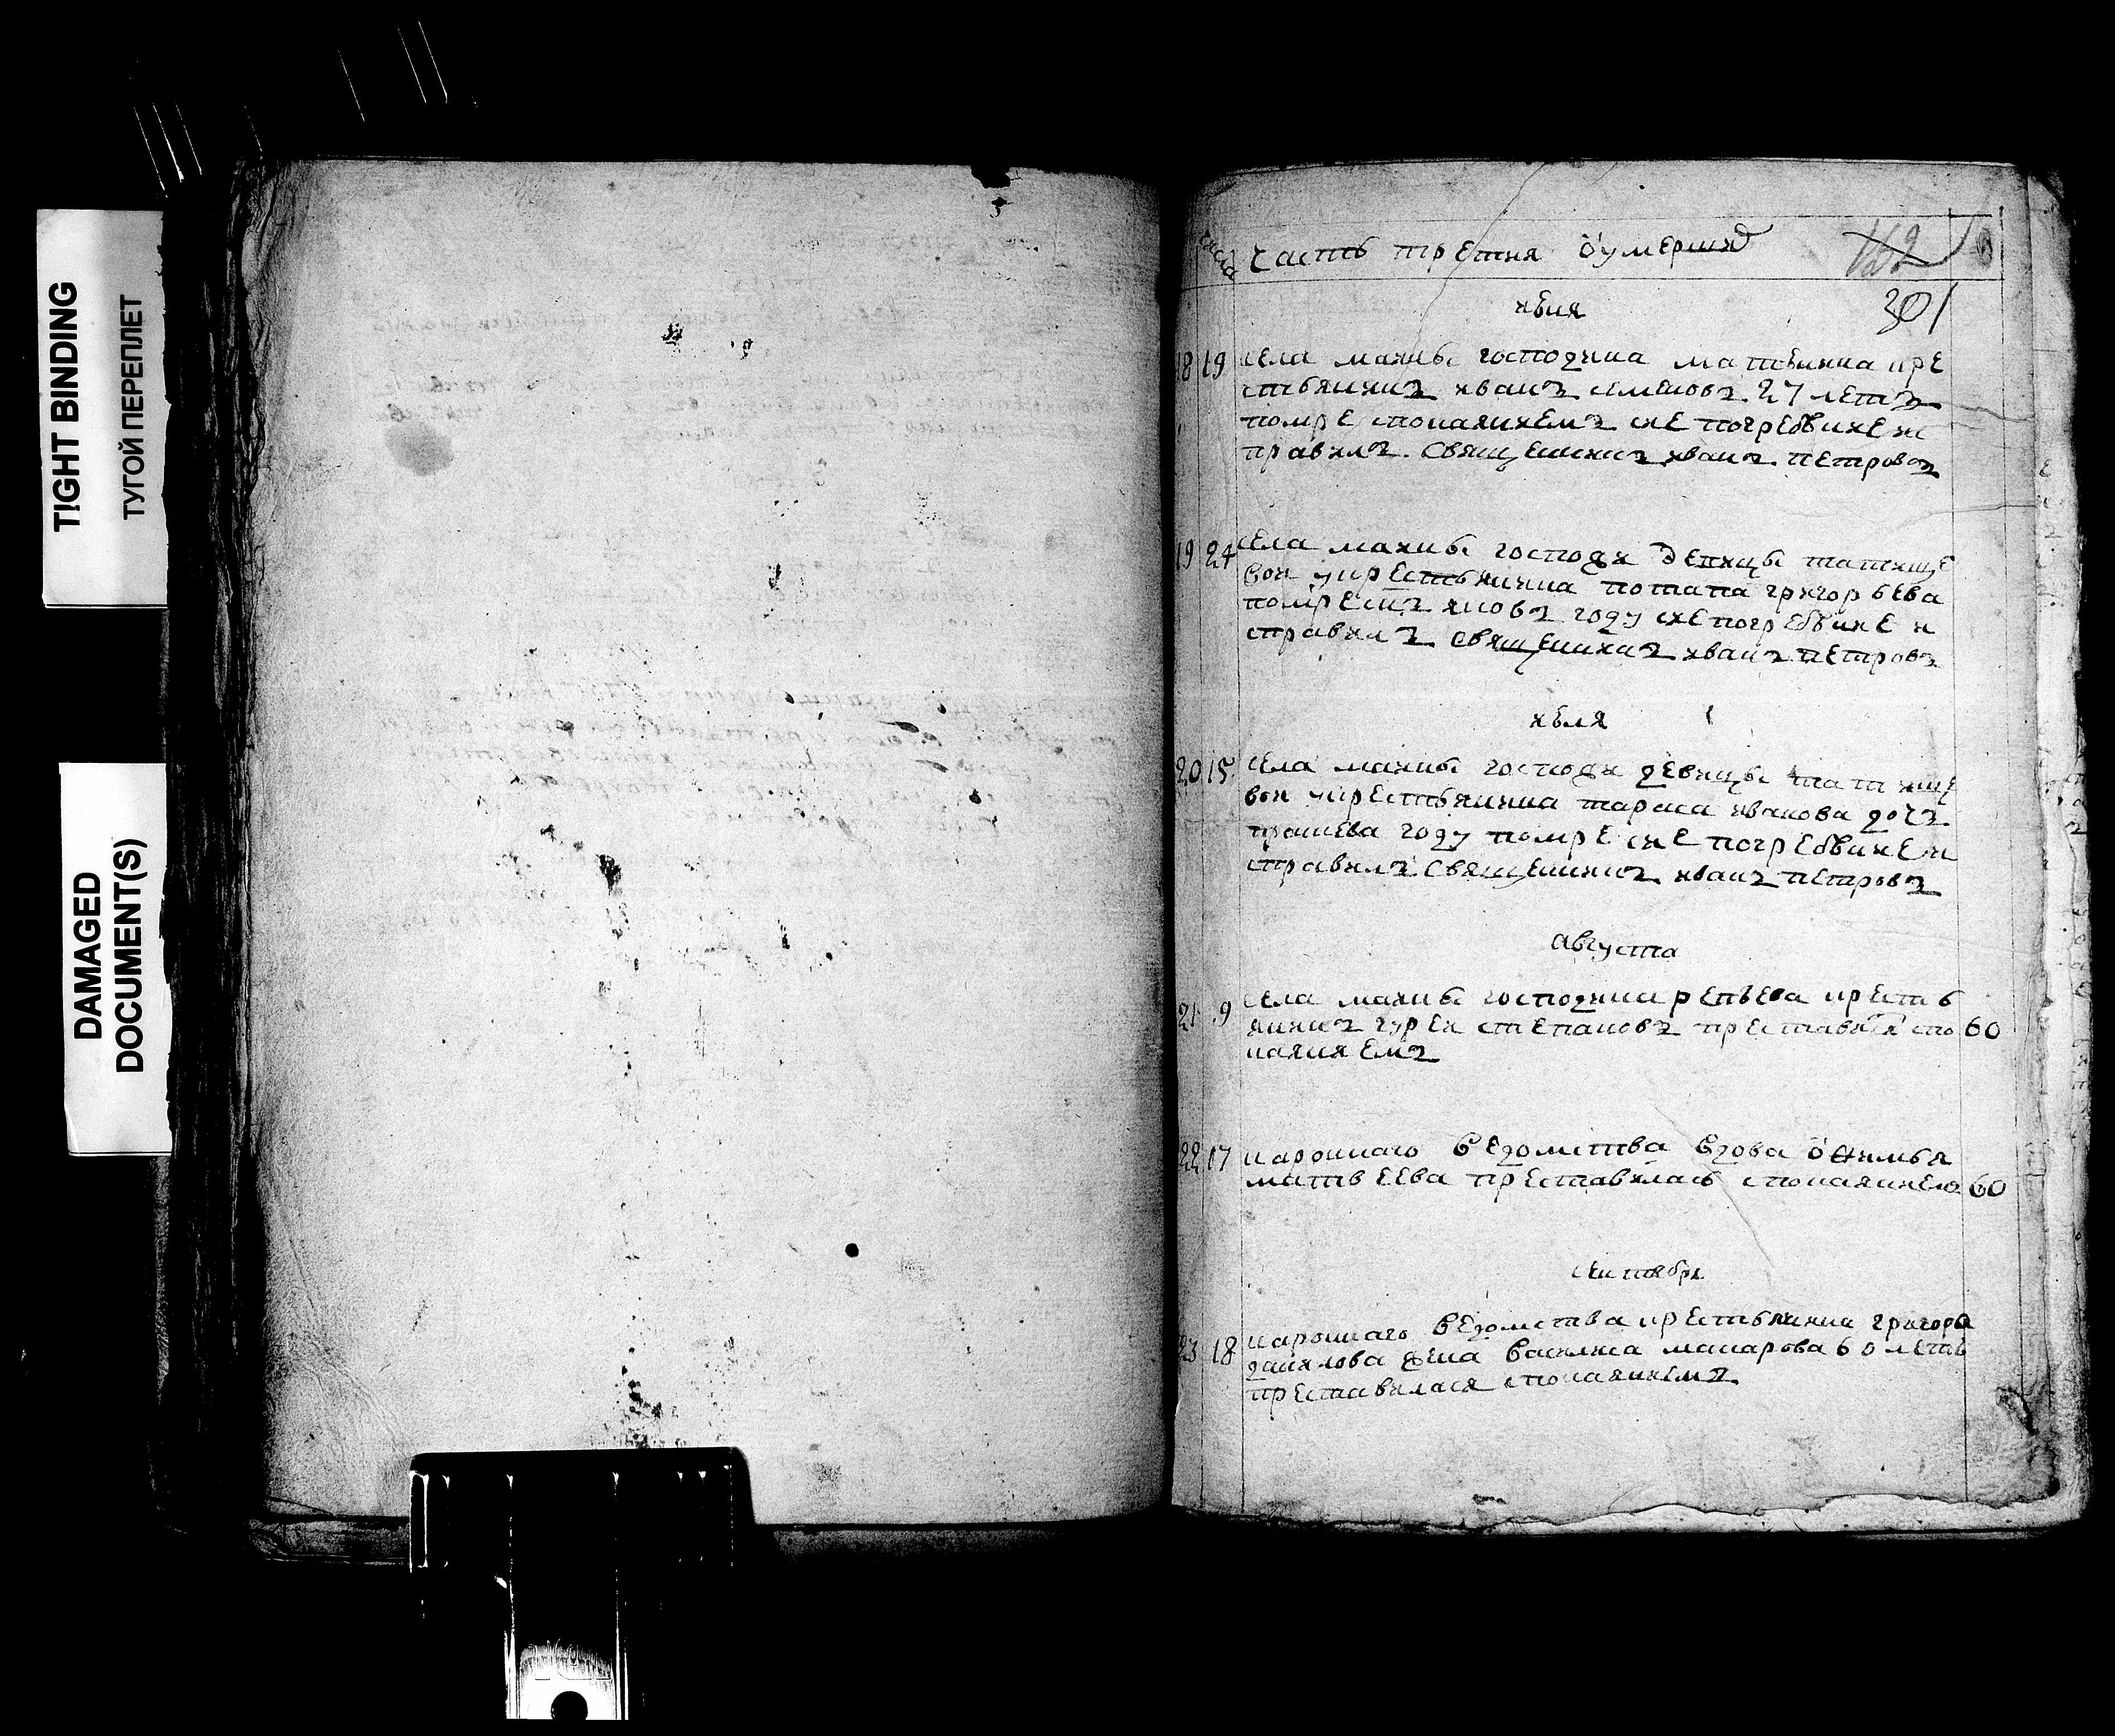 TIGHT BINDING
ТУГОЙ ПЕРЕПЛЕТ
DAMAGED
DOCUMENT(S)
числа
часть третия о умерших
162
301
июня
18 19 села маины господина матюнина кре
стьянинъ иванъ семеновъ 27 летъ
помре спокаяниемъ сие погребение и
правилъ священникъ иванъ петровъ
19 24 села маины господжи девицы татище
вои укрестьянина потапа григорьева
помре сынъ яковъ году сие погребение и
справилъ священникъ иванъ петровъ
июля
20 15 села маины господжи девицы татище
вои укрестьянина тараса иванова дочь
году помре сие погребение и
справилъ священникъ иванъ петровъ
августа
21 9 села маины господина репьева кресть
янинъ гуреи степановъ преставися спо 60
каяниемъ
22 17 ведомства вдова офимья
матвеева преставилась спокаяниемъ 60
сентября
23 18 ведомства крестьянина григорья
данилова жена василиса макарова 60 летъ
преставилася спокаяниемъ